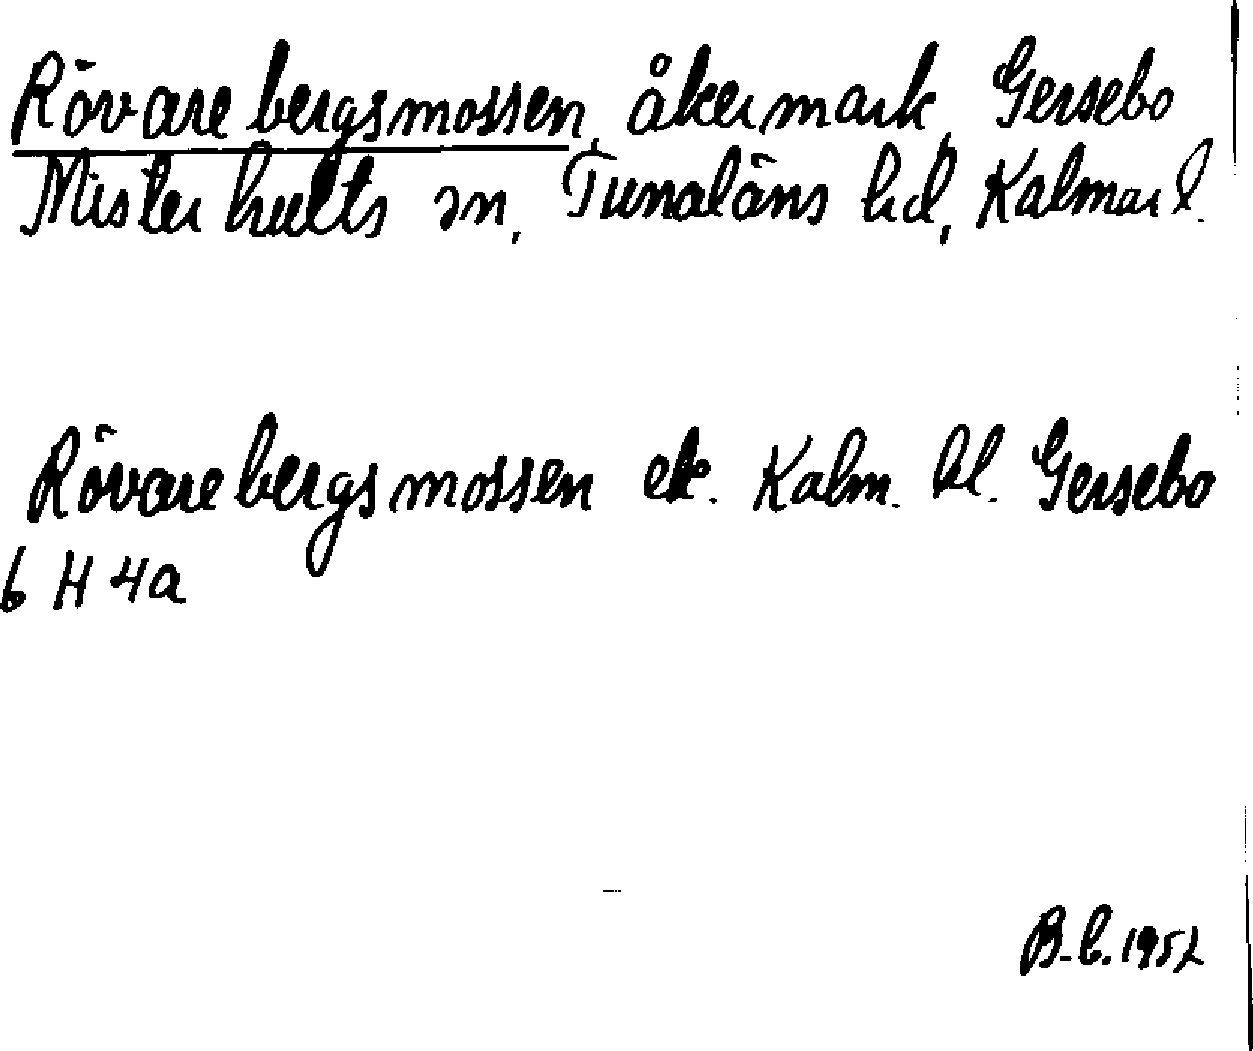 Rövarebergsmossen, åkermark, Gersebo
Misterhults sn, Tunaläns hd, Kalmar l.
Rövarebergsmossen ek. Kalm. bl. Gersebo
6 H 4a
B-b. 1952